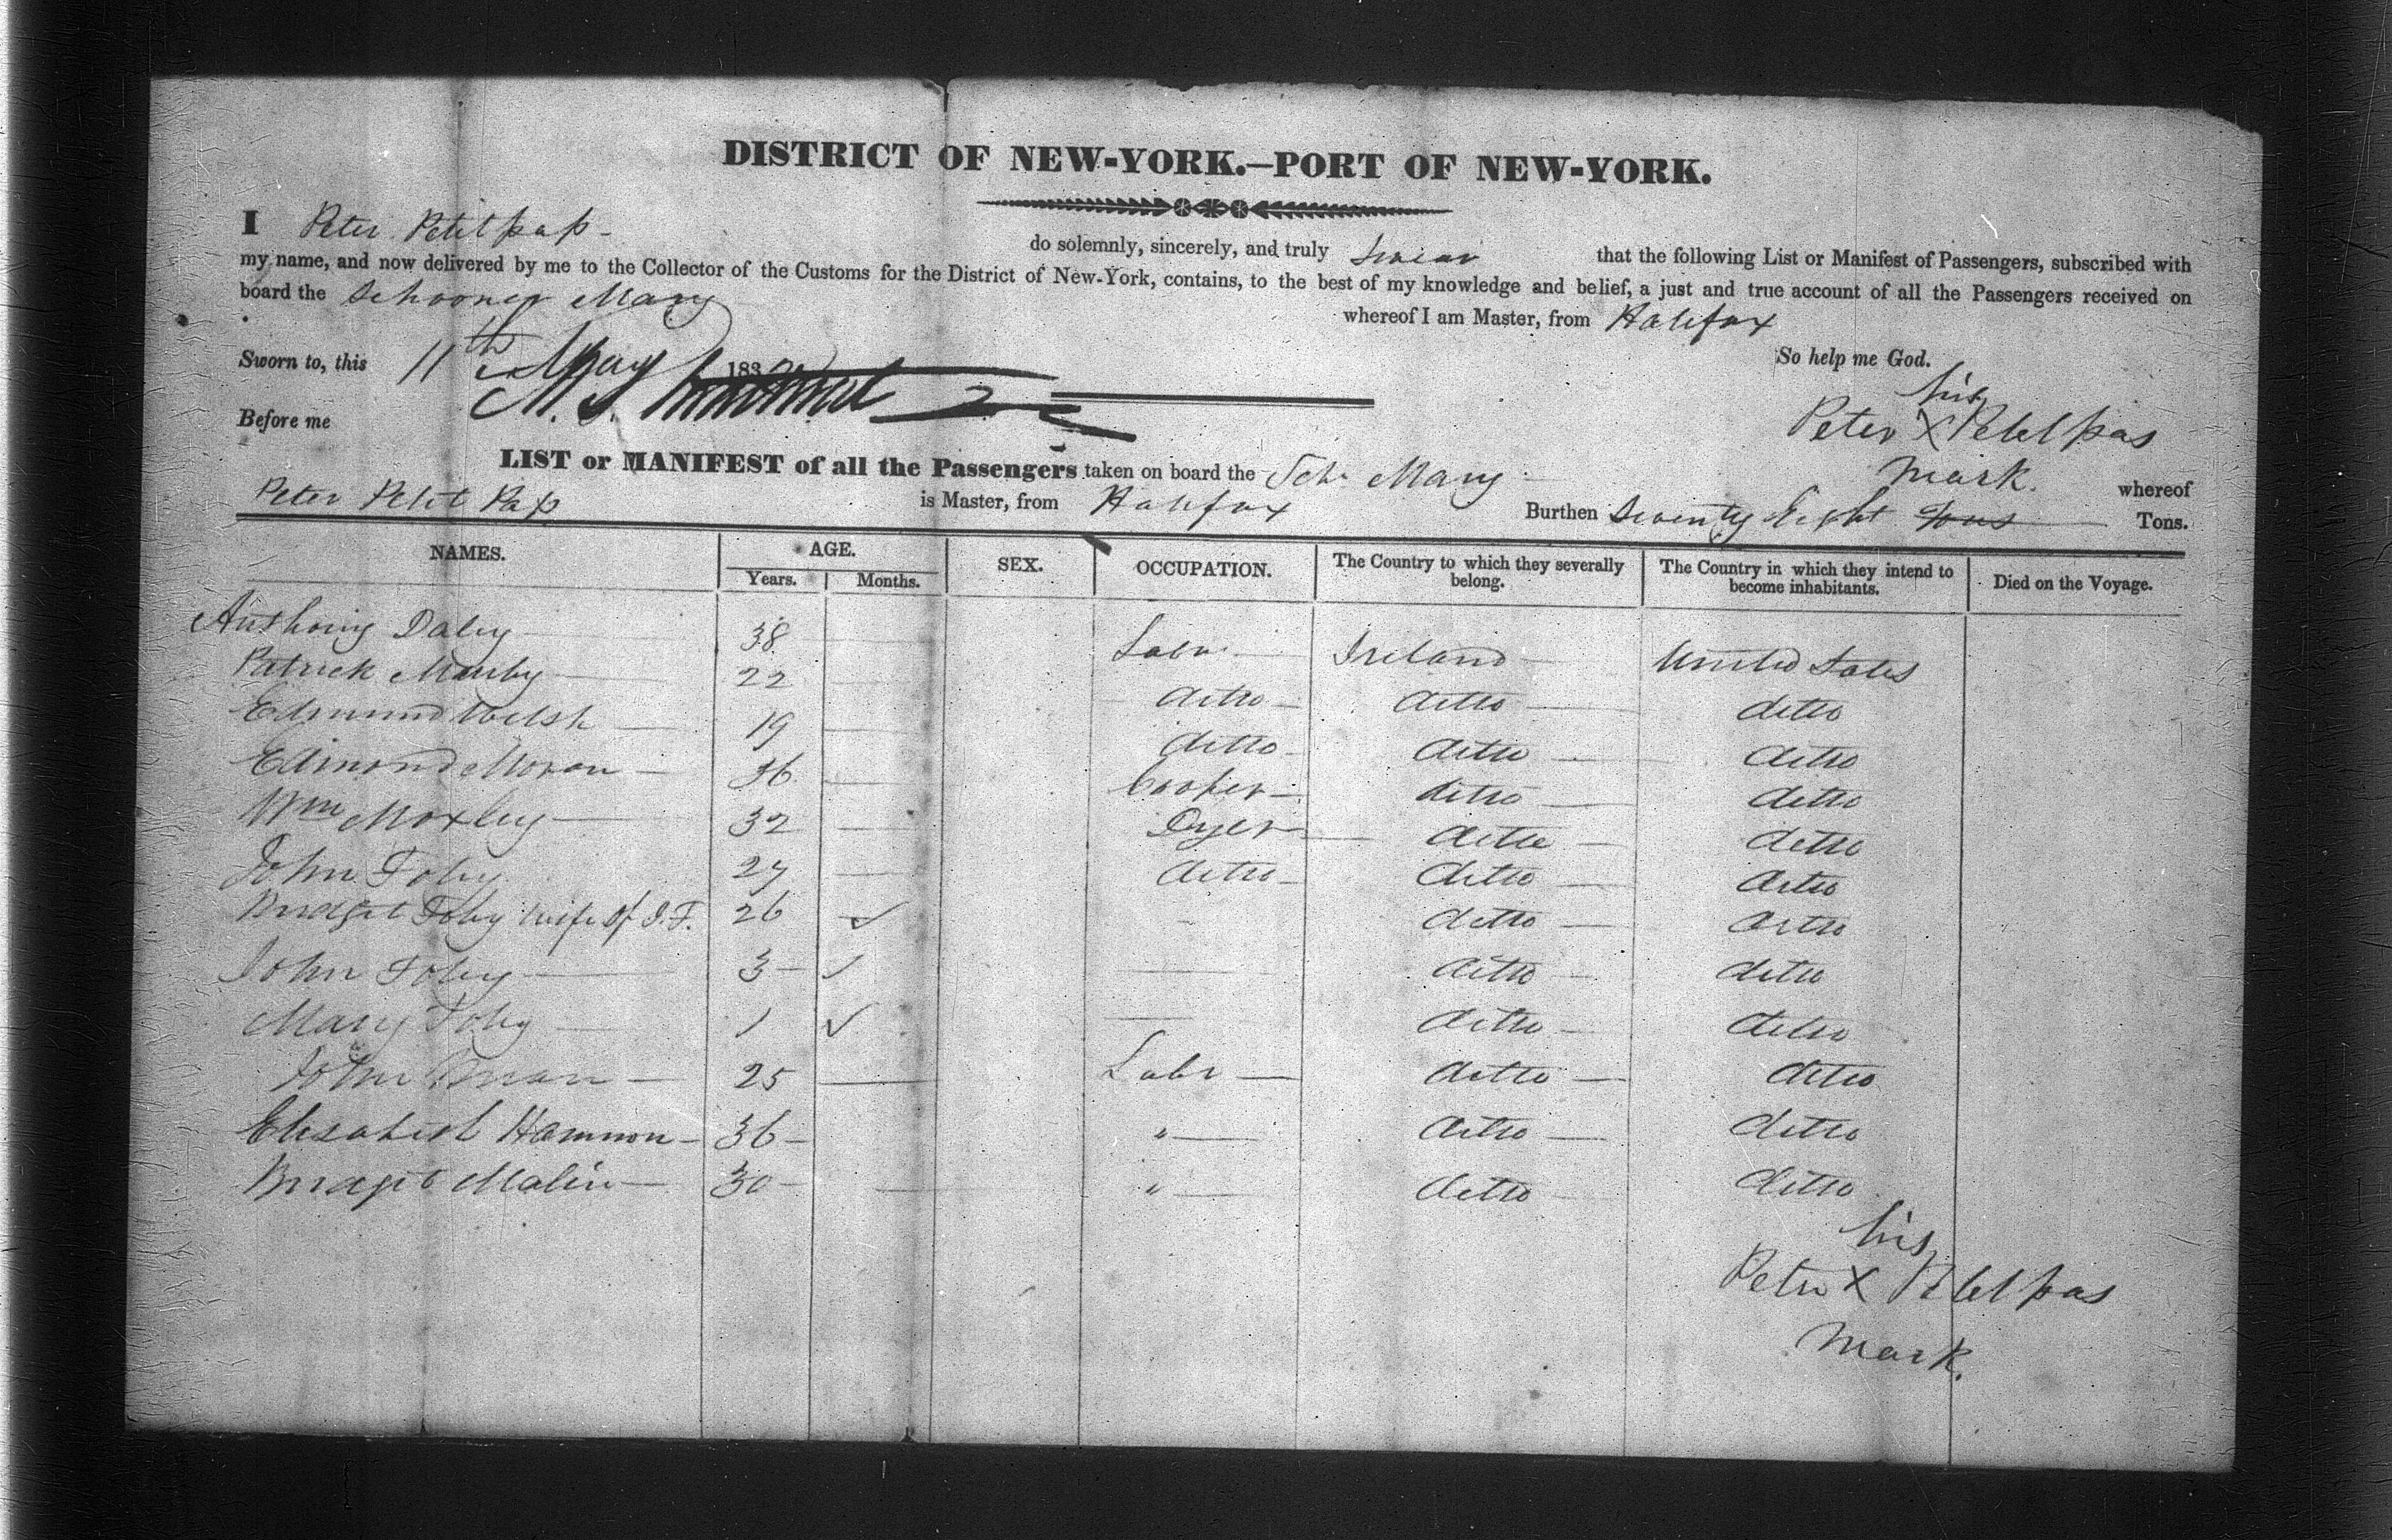 DISTRICT OF NEW-YORK.—PORT OF NEW-YORK.
I Peter Petitpap- do solemnly, sincerely, and truly swear that the following List or Manifest of Passengers, subscribed with
my name, and now delivered by me to the Collector of the Customs for the District of New-York, contains, to the best of my knowledge and belief, a just and true account of all the Passengers received on
board the Schooner Mary whereof I am Master, from Halifax
Sworn to, this 11th May 183 So help me God.
Before me
his
Peter X Petitpas
mark.
LIST or MANIFEST of all the Passengers taken on board the Sch. Mary whereof
Peter Petit Pap is Master, from Halifax Burthen Seventy Eight Tons Tons.
NAMES. AGE. SEX. OCCUPATION. The Country to which they severally belong. The Country in which they intend to become inhabitants. Died on the Voyage.
Years. Months.
Anthony Daley 38 Labr. Ireland United States
Patrick Manby 22 ditto ditto ditto
Edmund Welsh 19 ditto ditto ditto
Edmond Moran 36 Cooper ditto ditto
Wm Moxley 32 Dyer ditto ditto
John Foley 27 ditto ditto ditto
Bridget Foley wife of J.F. 26 ✓ ditto ditto
John Foley 3 ✓ ditto ditto
Mary Foley 1 ✓ ditto ditto
John 25 Labr ditto ditto
Elisabeth Hammon 36 " ditto ditto
Bridget Malin 30 " ditto ditto
his
Peter X Petitpas
mark.